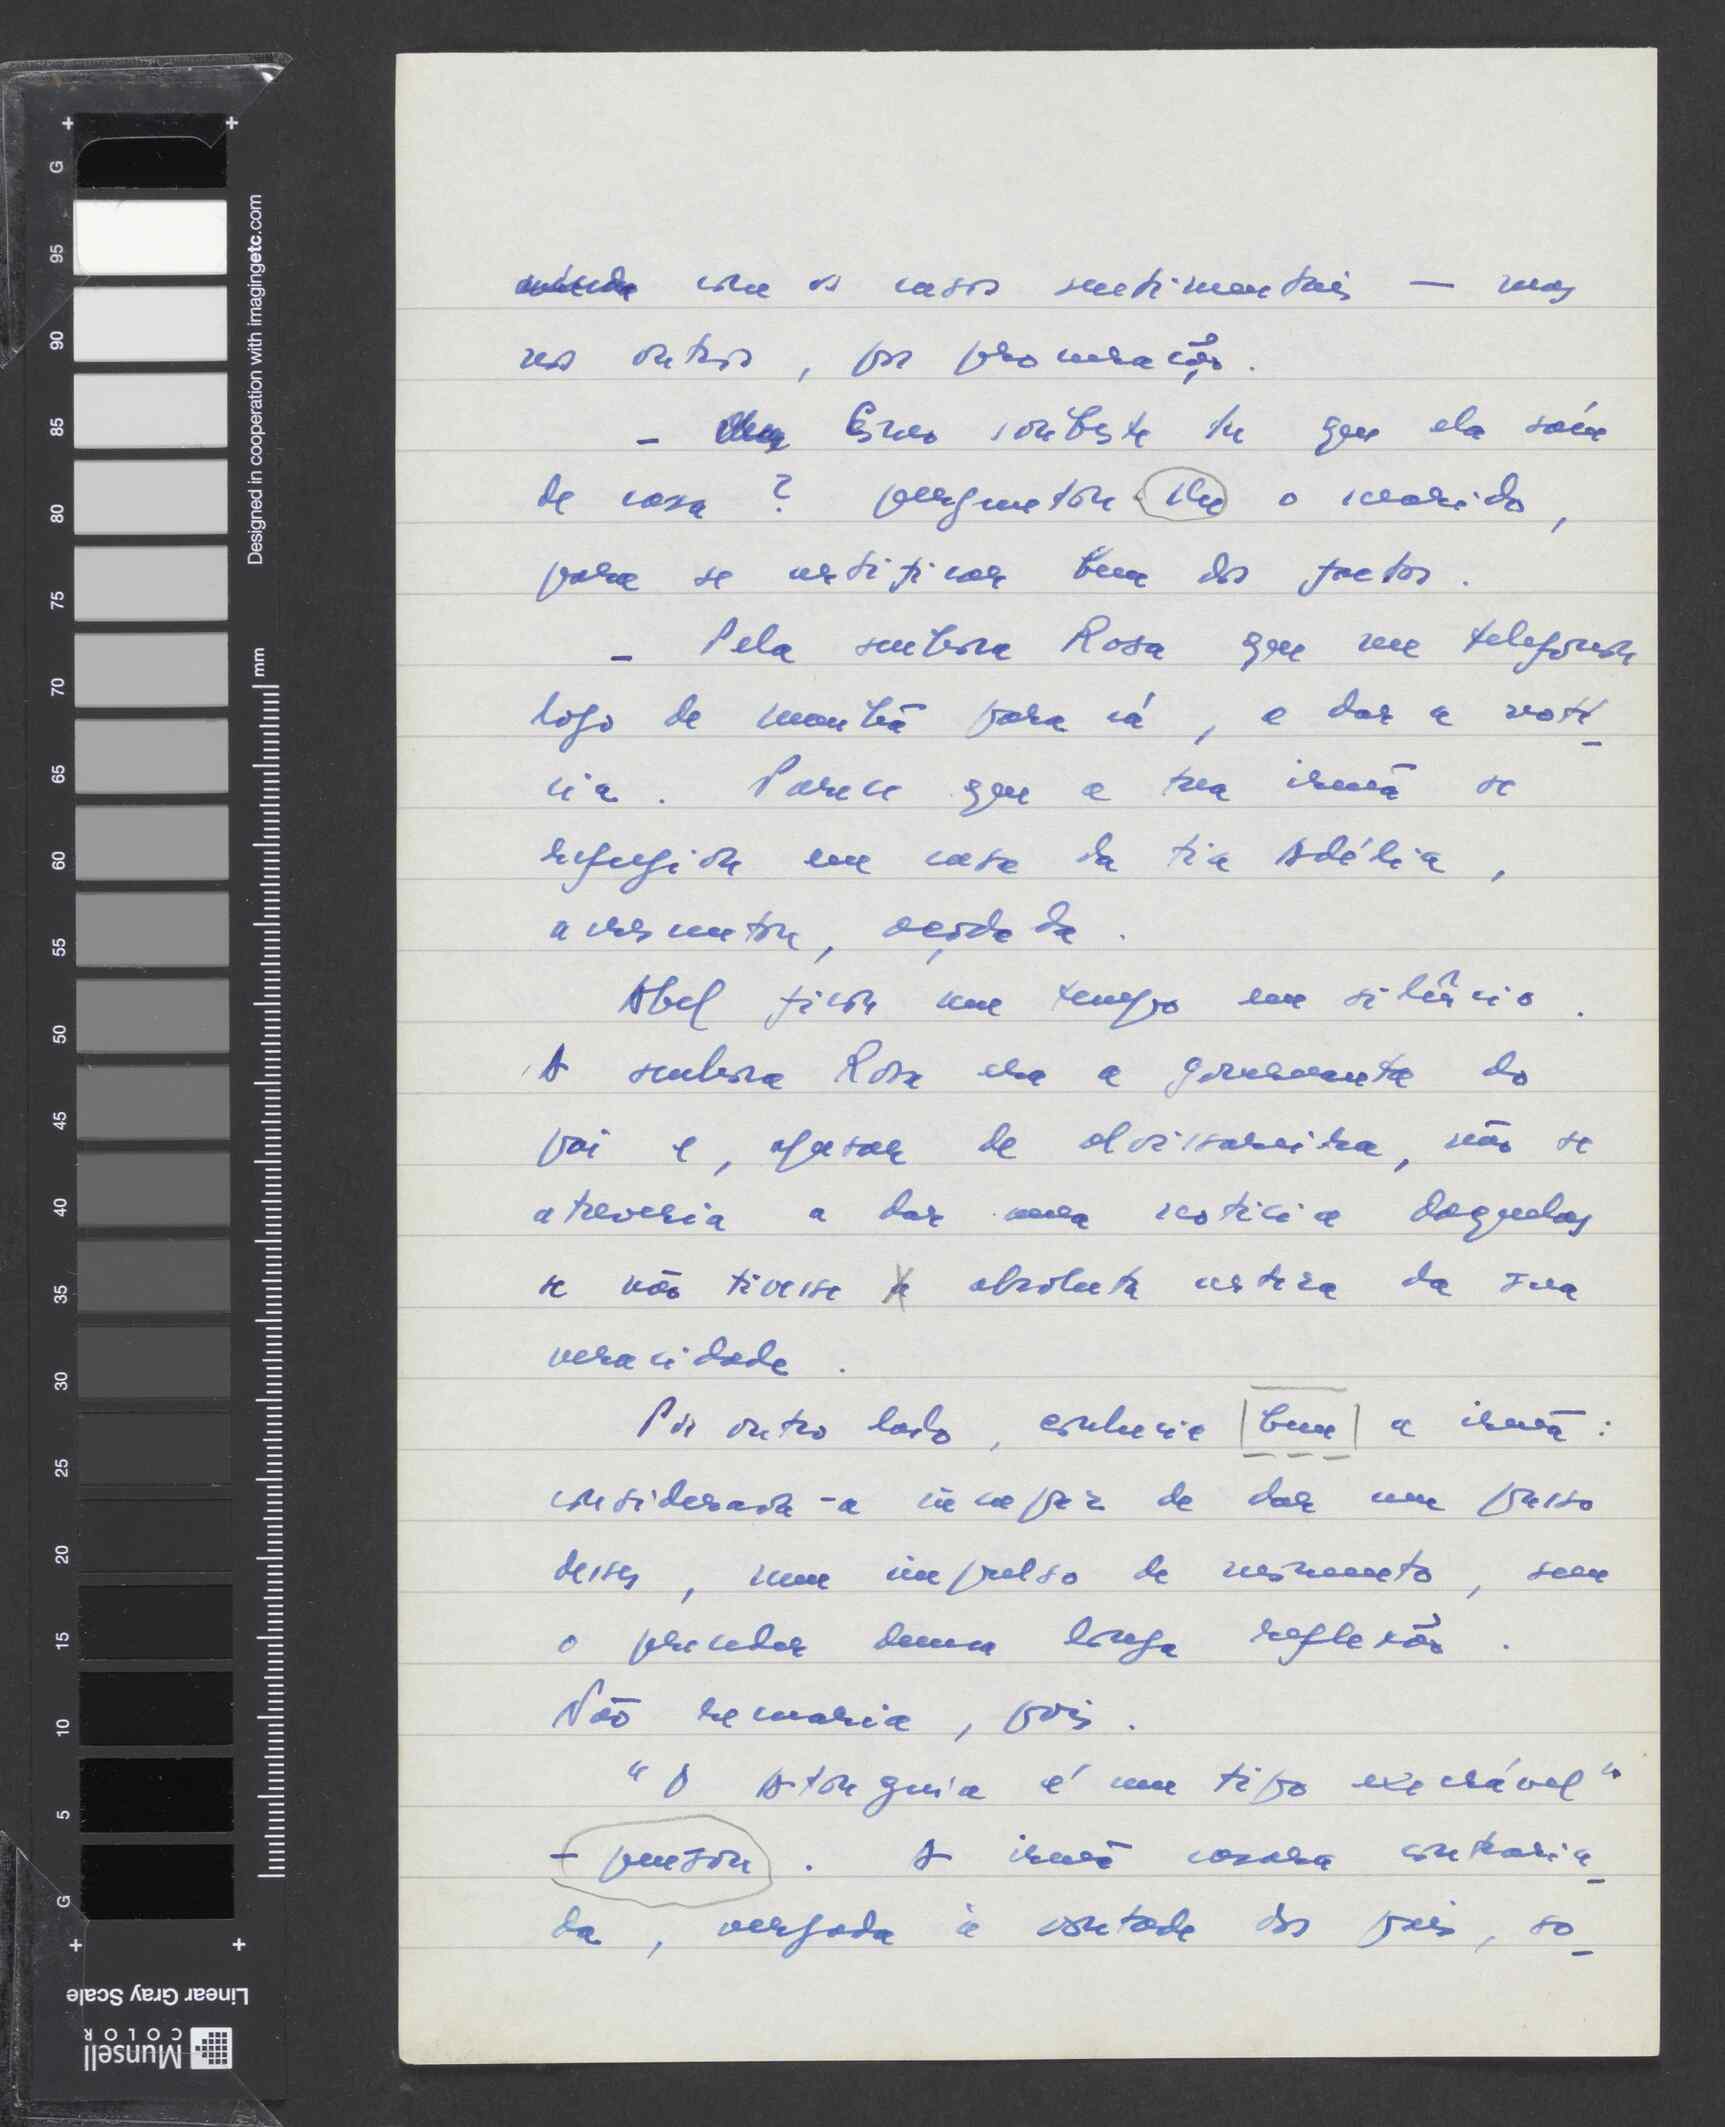 com os casos sentimentais — mas
nos outros, por procuração.
– Como soubeste tu que ela saíu
de casa? perguntou lhe o marido,
para se certificar bem dos factos.
– Pela senhora Rosa que me telefonou
logo de manhã para cá, a dar a notí-
cia. Parece que a tua irmã se
refugiou em casa da tia Adélia,
acrescentou, açodada.
Abel ficou um tempo em silêncio.
A senhora Rosa era a governanta do
pai e, apesar de alvissareira, não se
atreveria a dar uma notícia daquelas
se não tivesse a absoluta certeza da sua
veracidade.
Por outro lado, conhecia bem a irmã:
considerava-a incapaz de dar um passo
desses, num impulso de momento, sem
o preceder duma longa reflexão.
Não remaria, pois.
"O Atouguia é um tipo execrável"
– pensou. A irmã casara contraria-
da, vergada à vontade dos pais, so-
Designed in cooperation with imagingetc.com
mm
G
95
90
85
80
75
70
65
60
55
50
45
40
35
30
25
20
15
10
5
G
Linear Gray Scale
Munsell
COLOR